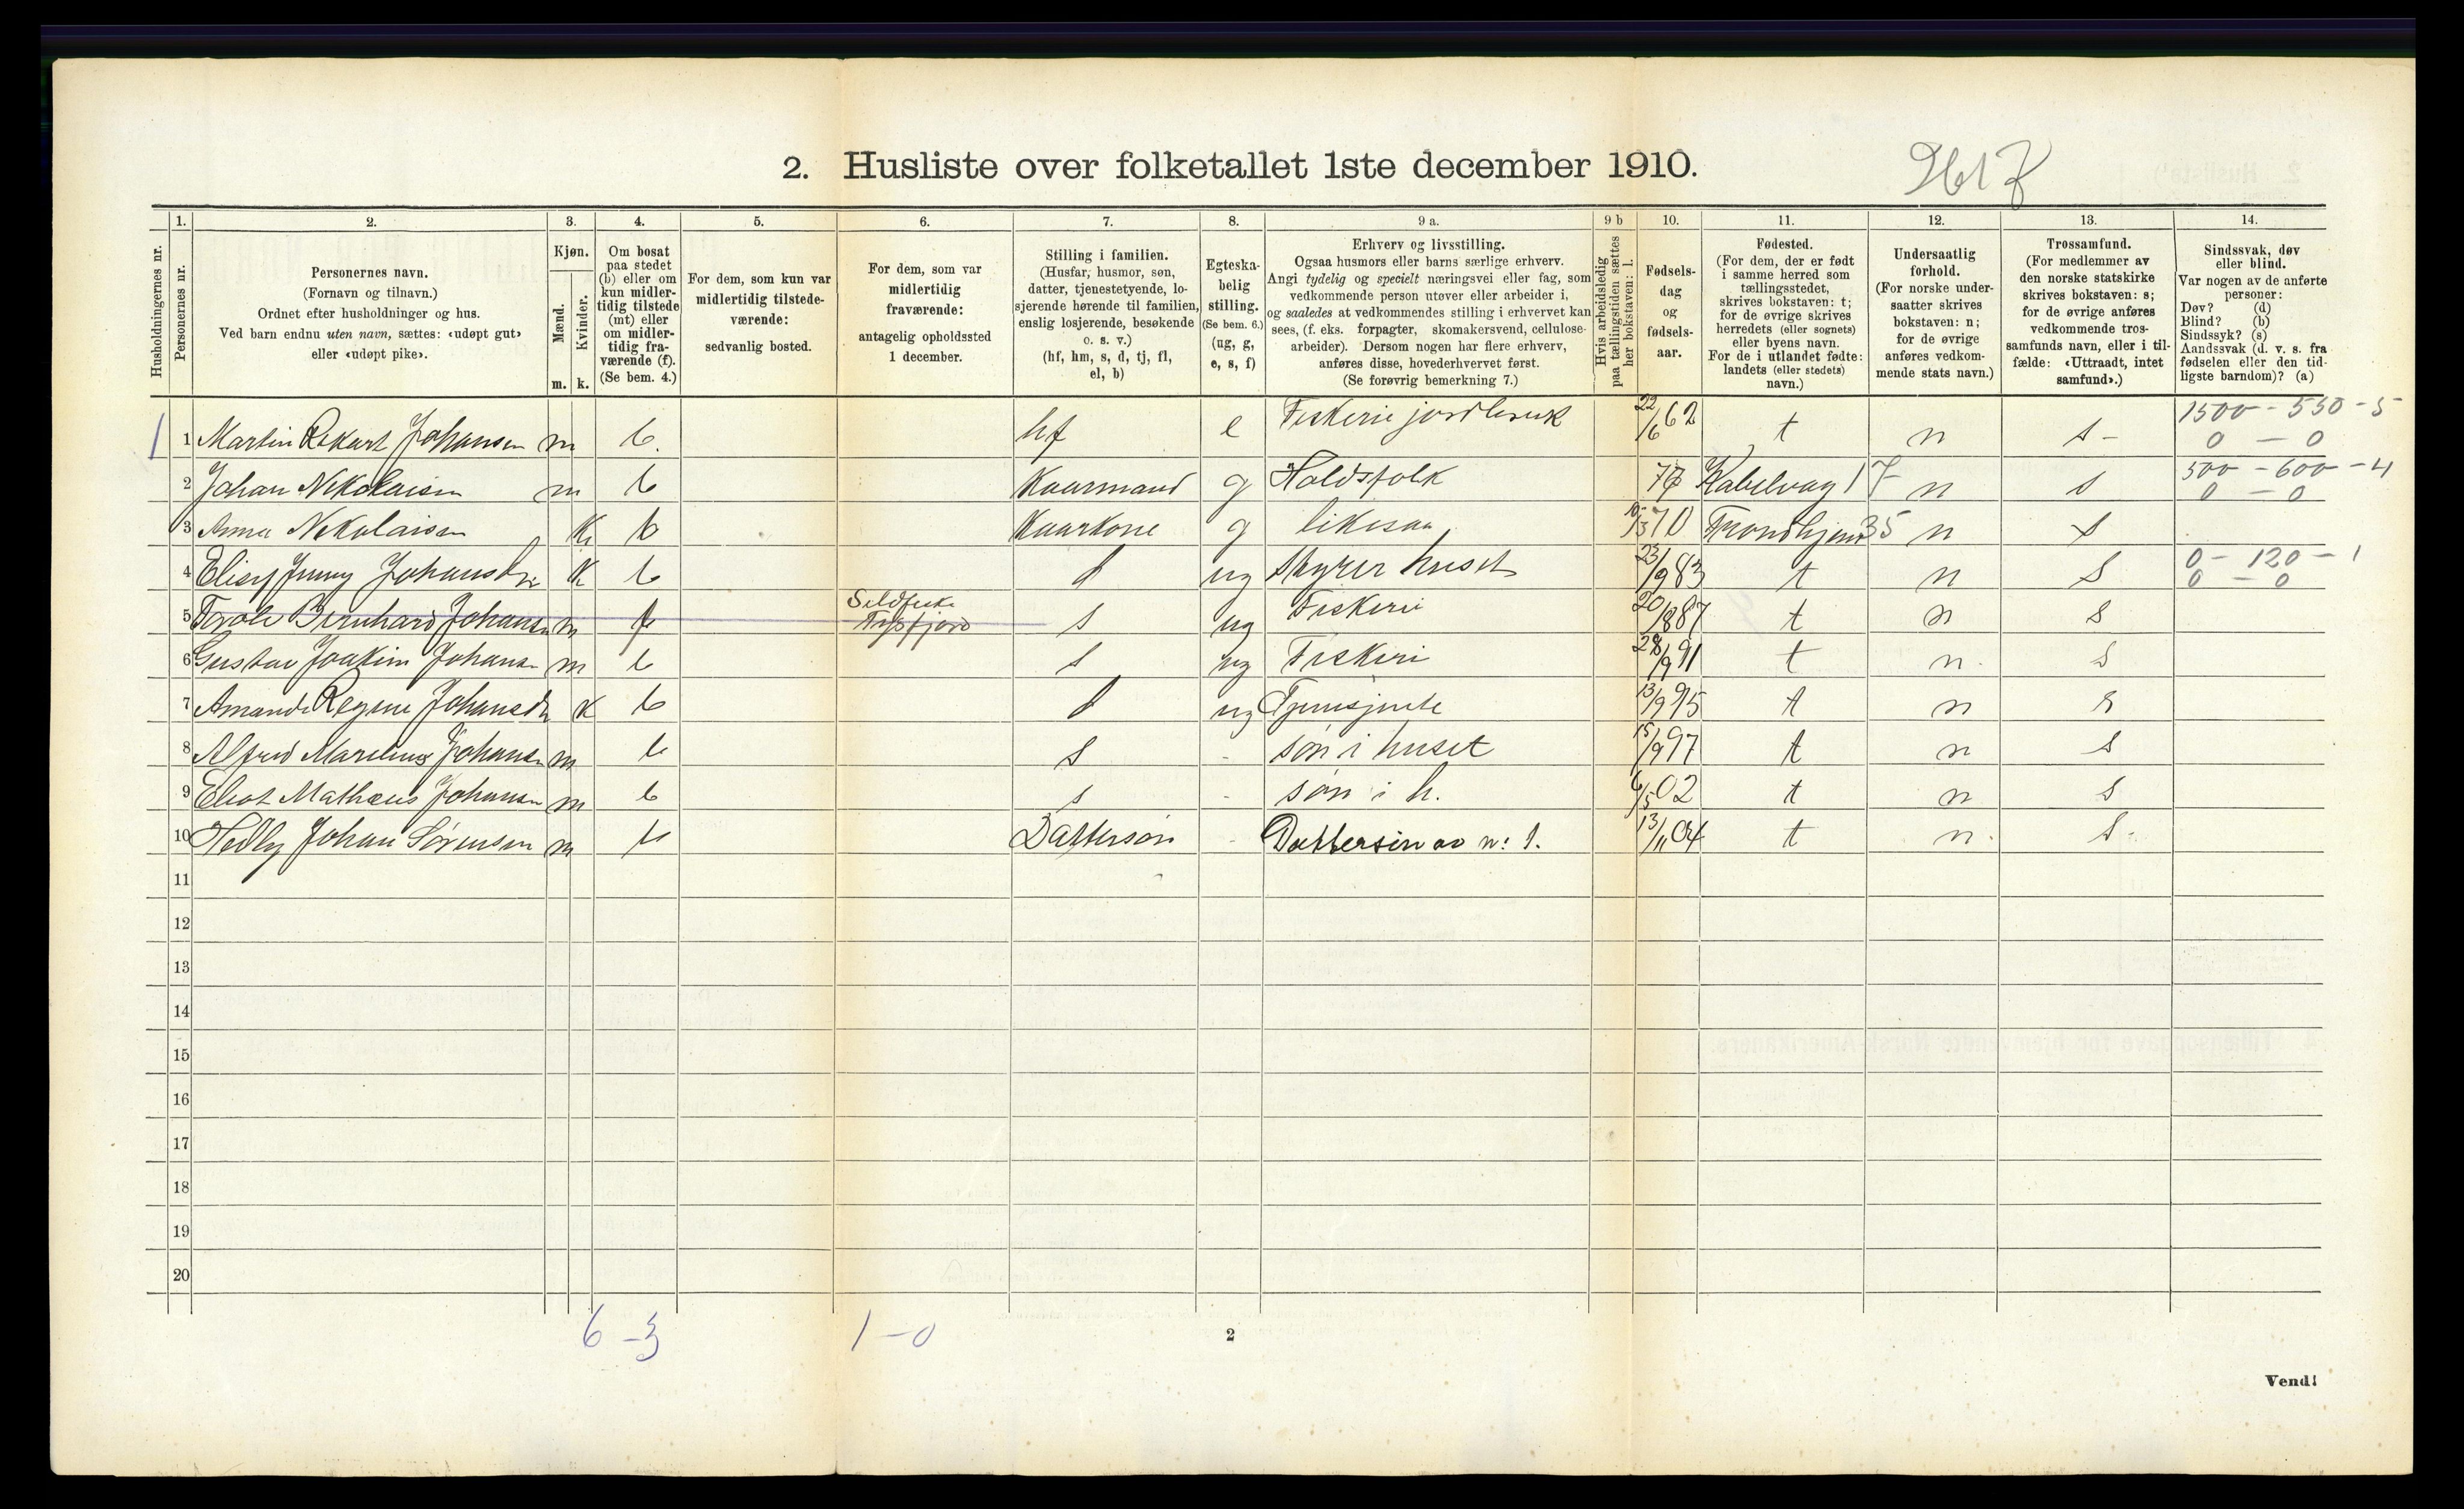 2. Husliste over folketallet 1ste december 1910.
1. 2. 3. 4. 5. 6. 7. 8. 9 a. 9 b 10. 11. 12. 13. 14.
Husholdningernes nr.
Personernes nr.
Personernes navn.
(Fornavn og tilnavn.)
Ordnet efter husholdninger og hus.
Ved barn endnu uten navn, sættes: «udøpt gut»
eller «udøpt pike».
Kjøn.
Mænd.
Kvinder.
m. k.
Om bosat
paa stedet
(b) eller om
kun midler-
tidig tilstede
(mt) eller
om midler-
tidig fra-
værende (f).
(Se bem. 4.)
For dem, som kun var
midlertidig tilstede-
værende:
sedvanlig bosted.
For dem, som var
midlertidig
fraværende:
antagelig opholdssted
1 december.
Stilling i familien.
(Husfar, husmor, søn,
datter, tjenestetyende, lo-
sjerende hørende til familien,
enslig losjerende, besøkende
o. s. v.)
(hf, hm, s, d, tj, fl,
el, b)
Egteska-
belig
stilling.
(Se bem. 6.)
(ug, g,
e, s, f)
Erhverv og livsstilling.
Ogsaa husmors eller barns særlige erhverv.
Angi tydelig og specielt næringsvei eller fag, som
vedkommende person utøver eller arbeider i,
og saaledes at vedkommendes stilling i erhvervet kan
sees, (f. eks. forpagter, skomakersvend, cellulose-
arbeider). Dersom nogen har flere erhverv,
anføres disse, hovederhvervet først.
(Se forøvrig bemerkning 7.)
Hvis arbeidsledig
paa tællingstiden sættes
her bokstaven: l.
Fødsels-
dag
og
fødsels-
aar.
Fødested.
(For dem, der er født
i samme herred som
tællingsstedet,
skrives bokstaven: t;
for de øvrige skrives
herredets (eller sognets)
eller byens navn.
For de i utlandet fødte:
landets (eller stedets)
navn.)
Undersaatlig
forhold.
(For norske under-
saatter skrives
bokstaven: n;
for de øvrige
anføres vedkom-
mende stats navn.)
Trossamfund.
(For medlemmer av
den norske statskirke
skrives bokstaven: s;
for de øvrige anføres
vedkommende tros-
samfunds navn, eller i til-
fælde: «Uttraadt, intet
samfund».)
Sindssvak, døv
eller blind.
Var nogen av de anførte
personer:
Døv? (d)
Blind? (b)
Sindssyk? (s)
Aandssvak (d. v. s. fra
fødselen eller den tid-
ligste barndom)? (a)
1500 - 550 - 5
1 1 Martin Rekart Johansen m b. hf e Fiskeri jordbruk 22/6 62 t n s - 0 - 0
500 - 600 - 4
2 Johan Nikolaisen m b Kaarmand g Holdsfolk Kabelvaag 17 n s 0 - 0
3 Anna Nikolaisen K b Kaarkone g likesaa 70 Trondhjem 35 n s
0 - 120 - 1
4 Elisy Jenny Johansdtr K b d ug Styrer huset 23/9 83 t n s 0 - 0
Sildfiske
5 Bernhard Johansen m f Tysfjord s ug Fiskeri 20/8 87 t n s
6 Gustav Joakim Johansn m b s ug Fiskeri 28/9 91 t n. s
7 Amanda Regine Johansdtr K b d ug Tjenesjente 13/9 95 t n s
8 Alfred Marelius Johansn m b s - søn i huset 15/9 97 t n s
9 Eliot Mathæus Johansen m b s - søn i h. 6/5 02 t n s
10 Hedly Johan Sørensen m b Dattersøn - Dattersøn av n: 1. 13/11 04 t n. s -
11
12
13
14
15
16
17
18
19
20
6 - 3 1 - 0 2
Vend!